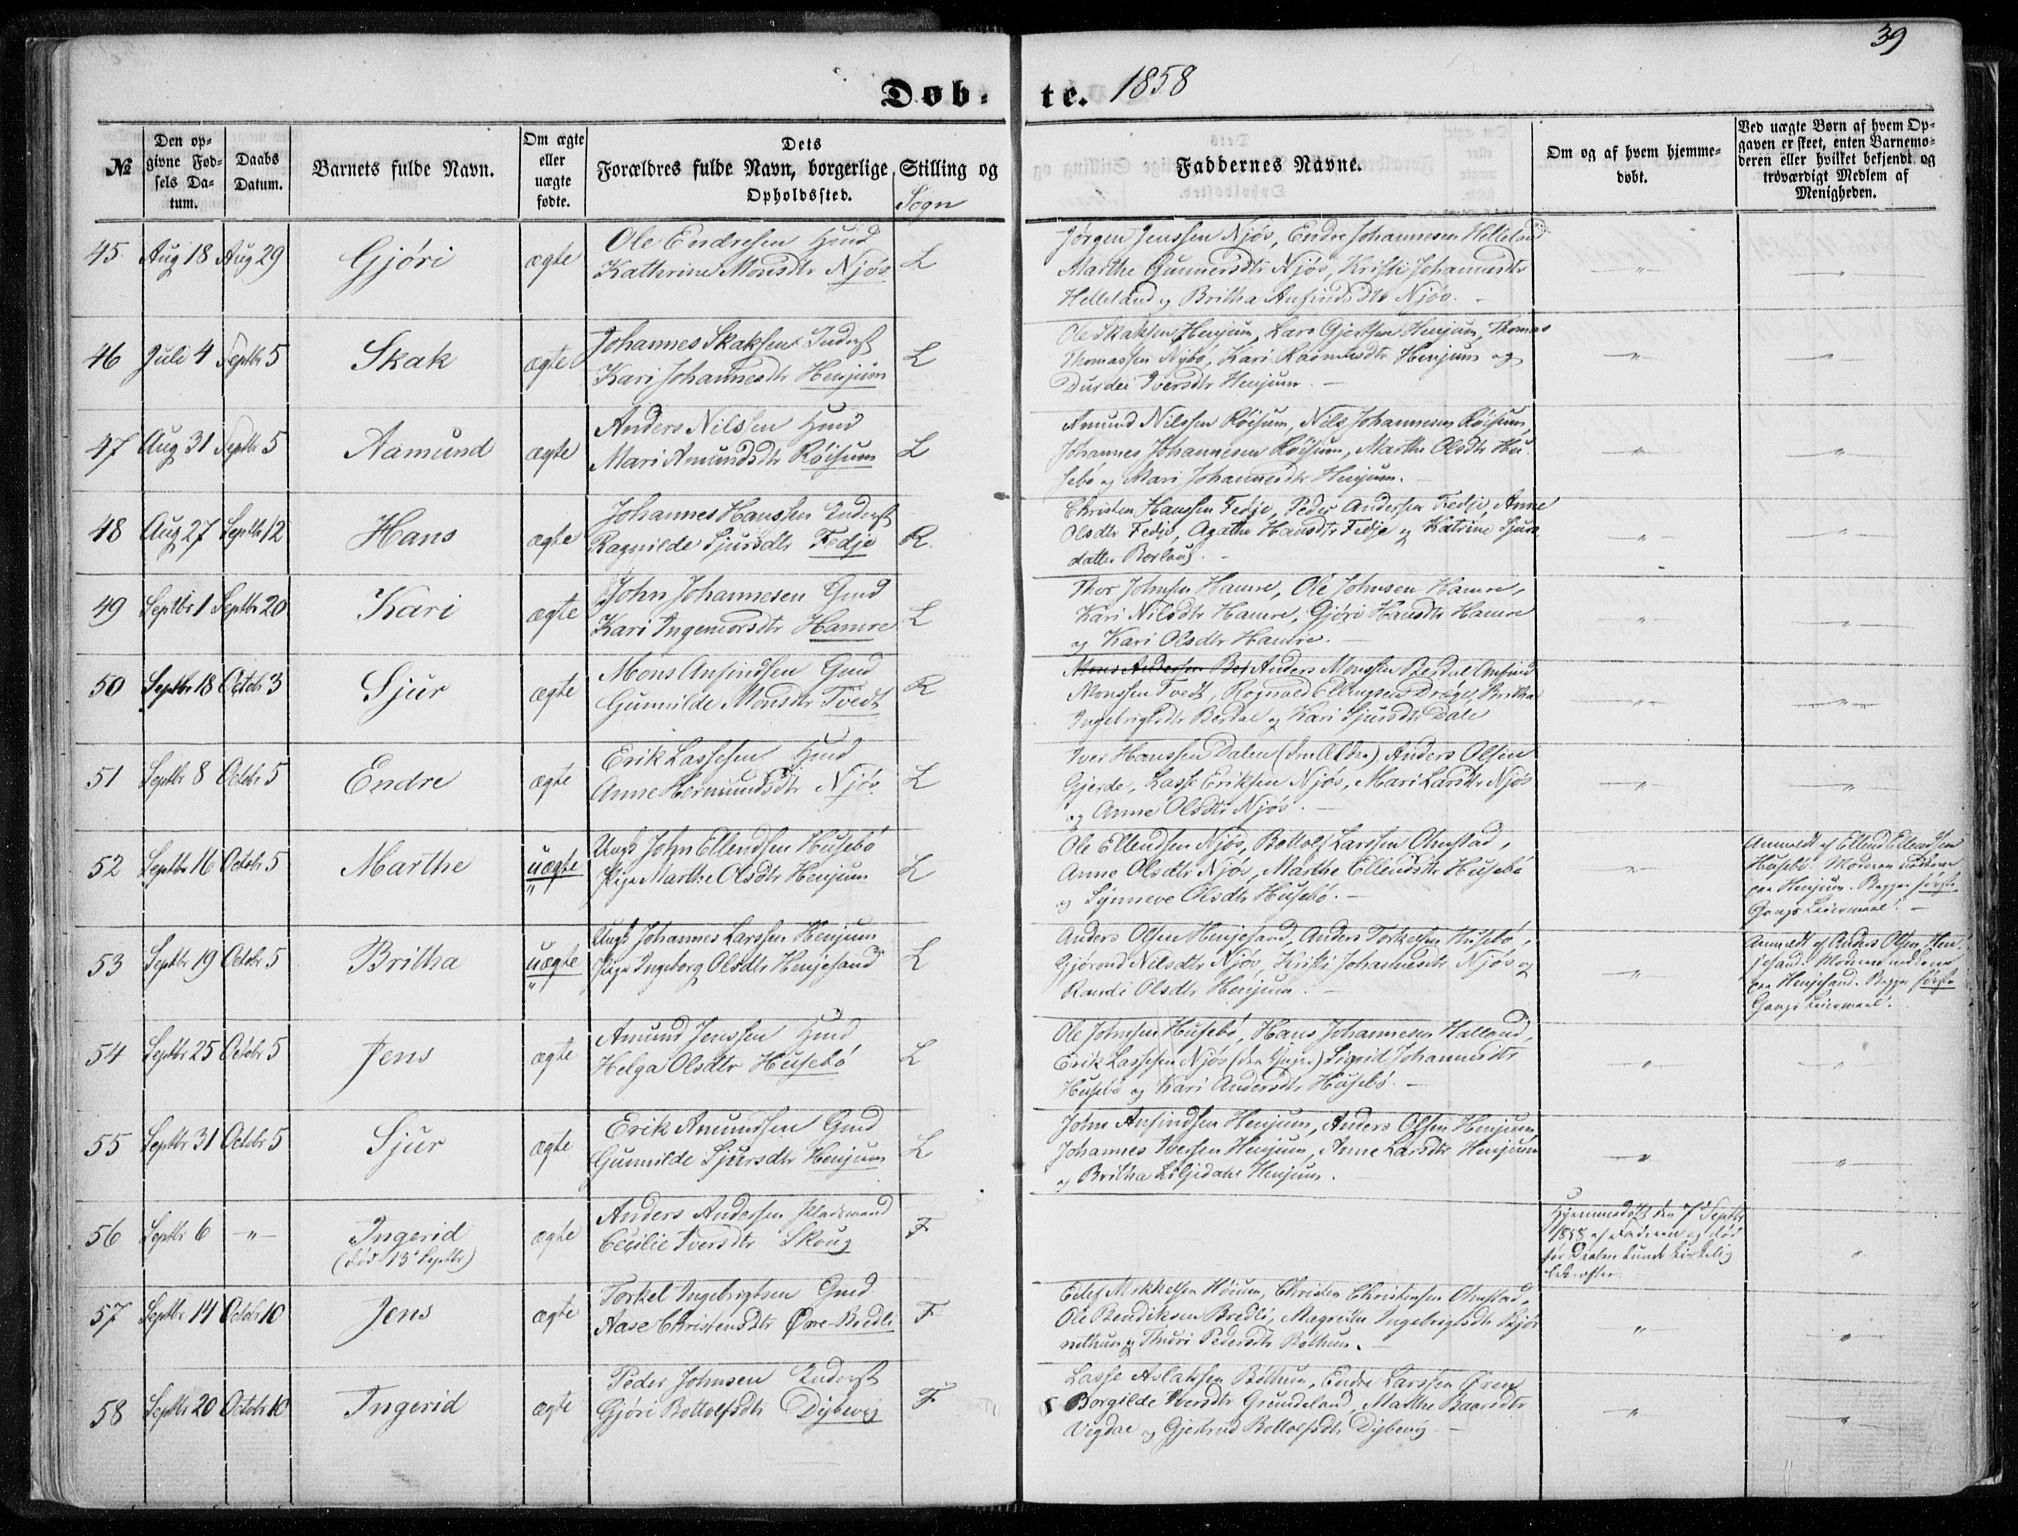 39
Døb-te. 1858
№
Den op-
givne Fød-
sels Da-
tum.
Daabs
Datum.
Barnets fulde Navn.
Om ægte
eller
uægte
fødte.
Dets
Forældres fulde Navn, borgerlige Stilling og
Opholdssted.
Sogn
Faddernes Navne.
Om og af hvem hjemme-
døbt.
Ved uægte Børn af hvem Op-
gaven er skeet, enten Barnemo-
deren eller hvilket bekjendt og
troværdigt Medlem af
Menigheden.
45 Aug 18 Aug 29 Gjøri ægte
Ole Endresen Hmd
Katherine Monsdtr Njøs L
Jørgen Jenssen Njøs, Endre Johannesen Helleland
Marthe Gunnersdtr Njøs, Kristi Johannesdtr
Helleland og Britha Ansindsdtr Njøs.
46 Juli 4 Septbr 5 Skak ægte
Johannes Skaksen Inderst
Kari Johannesdtr Henjum L
Ole Skaksen Henjum, Lars Gjertsen Henjum, Thomas
Thomassen Nybø, Kari Rasmusdtr Henjum og
Durdei Iversdtr Henjum.
47 Aug 31 Septbr 5 Aamund ægte
Anders Nilssen Hmd
Mari Amundsdtr Røisum L
Amund Nilssen Røisum, Nils Johannesen Røisum,
Johannes Johannesen Røisum, Marthe Olsdtr Hu-
sebø og Mari Johannesdtr Henjum.
48 Aug 27 Septbr 12 Hans ægte
Johannes Hanssen Inderst
Ragnilde Sjursdtr Fedje R.
Christen Hanssen Fedje, Peder Andersen Fedje, Anne
Olsdtr Fedje, Agathe Hansdtr Fedje og Katrine Sjurs
datter Borlaug.
49 Septbr 1 Septbr 20 Kari ægte
John Johannesen Gmd
Kari Ingemorsdtr Hamre L
Thor Johnsen Hamre, Ole Johnsen Hamre,
Kari Nilsdtr Hamre, Gjøri Hansdtr Hamre
og Kari Olsdtr Hamre.
50 Septbr 18 Octobr 3 Sjur ægte
Mons Ansindsen Gmd
Gunnilde Monsdtr Tvedt R
Mons Andersen Anders Monssen Berdal Ansind
Monssen Tvedt, Rognald Ellingsen Drægni, Britha
Ingebrigtsdtr Berdal og Kari Sjursdtr Dale
51 Septbr 8 Octobr 5 Endre ægte
Erik Lassesen Hmd
Anne Hermundsdtr Njøs. L
Iver Hanssen Dalen (den Ældre) Anders Olsen
Gjerde, Lasse Eriksen Njøs, Mari Larsdtr Njøs
og Anne Olsdtr Njøs.
52 Septbr 16 Octobr 5 Marthe uægte
Ungk John Ellendsen Husebø
Pige Marthe Olsdtr Henjum L
Ole Ellendsen Njøs, Bottolf Larssen Ohnstad,
Anne Olsdtr Njøs, Marthe Ellendsdtr Husebø
og Synneve Olsdtr Husebø.
Anmeldt af Ellend Ellendsen
Husebø. Moderen
paa Henjum. Begges første
Gangs Leiermaal.
53 Septbr 19 Octobr 5 Britha uægte
Ungk Johannes Larssen Henjum
Pige Ingeborg Olsdtr Henjesand L
Anders Olsen Henjesand, Anders Torkelsen Husebø,
Gjørond Nilsdtr Njøs, Kristi Johannesdtr Njøs og
Randi Olsdtr Henjum.
Anmeldt af Anders Olsen Hen-
jesand. Moderen
paa Henjesand. Begges første
Gangs Leiermaal.
54 Septbr 25 Octobr 5 Jens ægte
Amund Jenssen Hmd
Helga Olsdtr Husebø L
Ole Johnsen Husebø, Hans Johannesen Halland,
Erik Lassesen Njøs (den Yngre) Sigrid Johannesdtr
Husebø og Kari Andersdtr Husebø.
55 Septbr 31 Octobr 5 Sjur ægte
Erik Amundsen Gmd
Gunnilde Sjursdtr Henjum L
John Ansindsen Henjum, Anders Olsen Henjum,
Johannes Iversen Henjum, Anne Larsdtr Henjum
og Britha Liljedahl Henjum.
56 Septbr 6 Ingerid
(død 13de Septbr) ægte
Anders Andersen Pladsmand
Cecilie Iversdtr Skoug F
Hjemmedøbt den 7de Septbr
1858 af Faderen og død
før Daaben kunde kirkelig
bekræftes
57 Septbr 14 Octobr 10 Jens ægte
Torkel Ingebrigtsen Gmd
Aase Christensdtr Øvre-Bredli F
Mikkelsen Høium, Christen Christensen Ohnstad,
Ole Bendiksen Bredli, Magrethe Ingebrigtsdtr
og Thuri Pedersdtr Bøthun.
58 Septbr 20 Octobr 10 Ingerid ægte
Peder Johnsen Inderst
Gjøri Bottolfsdtr Dybevig F
Lasse Aslaksen Bøthun, Endre Larssen Øren
Borgilde Iversdtr Grindeland, Marthe Baarsdtr
Vigdal og Gjertrud Bottolfsdtr Dybevig